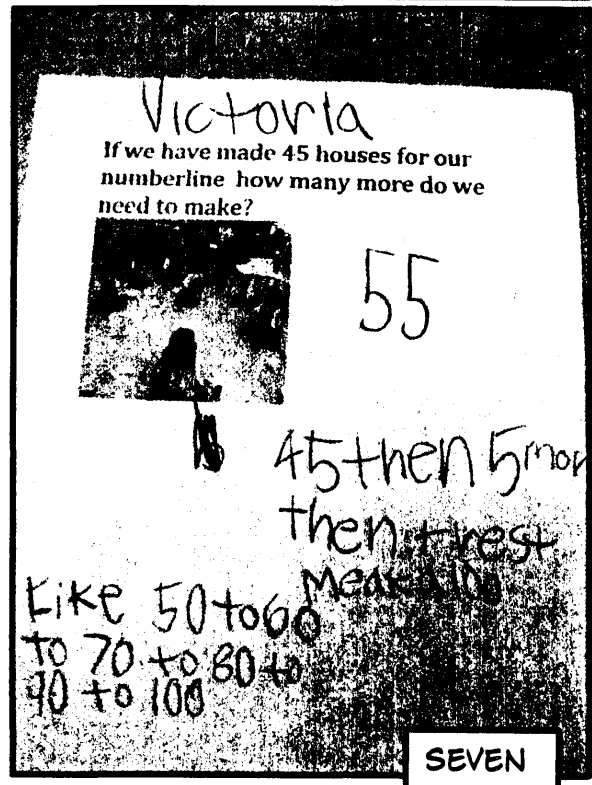 Victoria
If we have made 45 houses for our
numberline how many more do we
need to make?
55
45 then 5 mor
then rest
Like 50 to 60
to 70 to 80 to
90 to 100
SEVEN